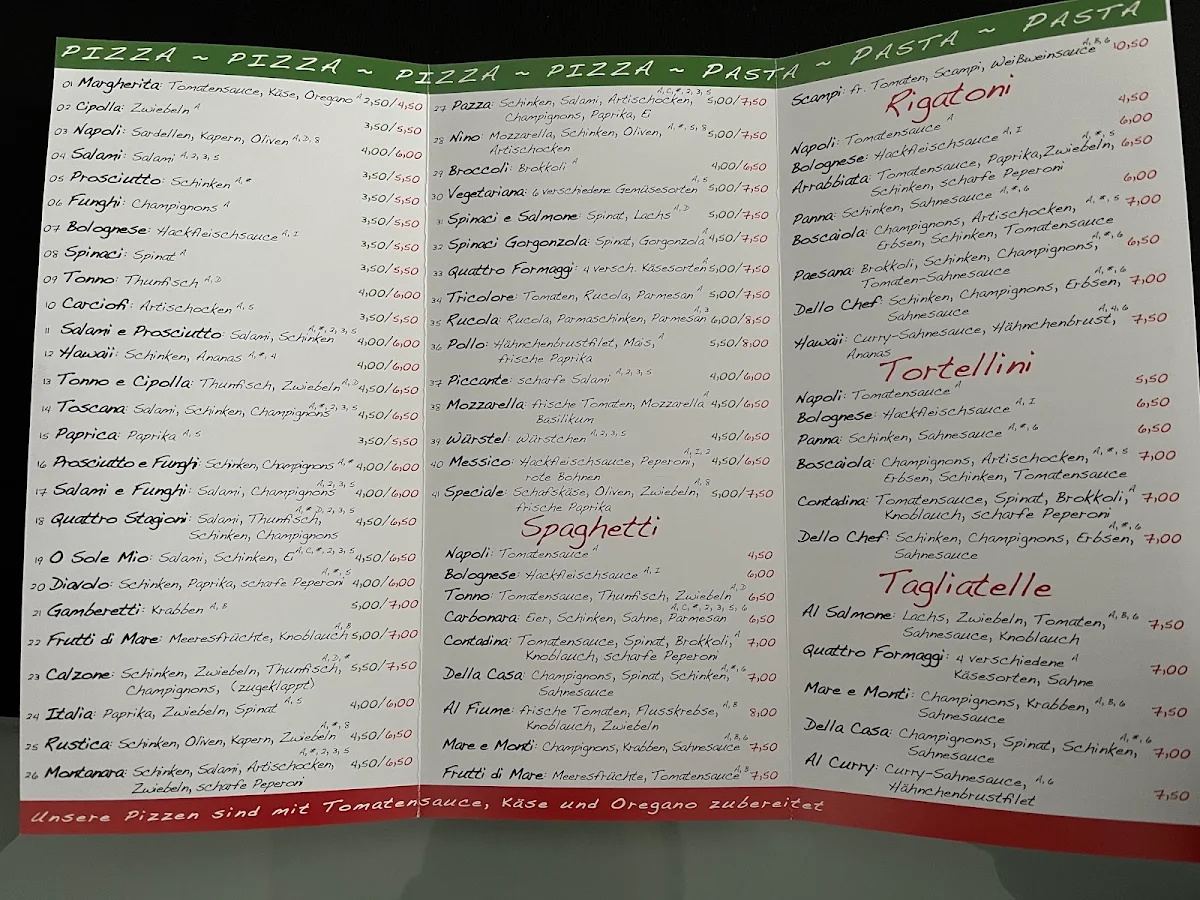 PIZZA ~ PIZZA ~ PIZZA ~ PIZZA ~ PASTA ~ PASTA ~ PASTA
01 Margherita: Tomatensauce, Käse, Oregano A 2,50/4,50
02 Cipolla: Zwiebeln A 3,50/5,50
03 Napoli: Sardellen, Kapern, Oliven A, D, 8 4,00/6,00
04 Salami: Salami A, 2, 3, 5 3,50/5,50
05 Prosciutto: Schinken A, * 3,50/5,50
06 Funghi: Champignons A 3,50/5,50
07 Bolognese: Hackfleischsauce A, I 3,50/5,50
08 Spinaci: Spinat A 3,50/5,50
09 Tonno: Thunfisch A, D 4,00/6,00
10 Carciofi: Artischocken A, 5 3,50/5,50
11 Salami e Prosciutto: Salami, Schinken A, *, 2, 3, 5 4,00/6,00
12 Hawaii: Schinken, Ananas A, *, 4 4,00/6,00
13 Tonno e Cipolla: Thunfisch, Zwiebeln A, D 4,50/6,50
14 Toscana: Salami, Schinken, Champignons A, *, 2, 3, 5 4,50/6,50
15 Paprica: Paprika A, 5 3,50/5,50
16 Prosciutto e Funghi: Schinken, Champignons A, * 4,00/6,00
17 Salami e Funghi: Salami, Champignons A, 2, 3, 5 4,00/6,00
18 Quattro Stagioni: Salami, Thunfisch, A, *, D, 2, 3, 5 4,50/6,50
Schinken, Champignons
19 O Sole Mio: Salami, Schinken, Ei A, C, *, 2, 3, 5 4,50/6,50
20 Diavolo: Schinken, Paprika, scharfe Peperoni A, *, 5 4,00/6,00
21 Gamberetti: Krabben A, B 5,00/7,00
22 Frutti di Mare: Meeresfrüchte, Knoblauch A, B 5,00/7,00
23 Calzone: Schinken, Zwiebeln, Thunfisch, A, D, * 5,50/7,50
Champignons, (zugeklappt)
24 Italia: Paprika, Zwiebeln, Spinat A, 5 4,00/6,00
25 Rustica: Schinken, Oliven, Kapern, Zwiebeln A, *, 8 4,50/6,50
26 Montanara: Schinken, Salami, Artischocken, A, *, 2, 3, 5 4,50/6,50
Zwiebeln, scharfe Peperoni
27 Pazza: Schinken, Salami, Artischocken, A, C, *, 2, 3, 5 5,00/7,50
Champignons, Paprika, Ei
28 Nino: Mozzarella, Schinken, Oliven, A, *, 5, 8 5,00/7,50
Artischocken
29 Broccoli: Brokkoli A 4,00/6,50
30 Vegetariana: 6 verschiedene Gemüsesorten A, 5 5,00/7,50
31 Spinaci e Salmone: Spinat, Lachs A, D 5,00/7,50
32 Spinaci Gorgonzola: Spinat, Gorgonzola A 4,50/7,50
33 Quattro Formaggi: 4 versch. Käsesorten A 5,00/7,50
34 Tricolore: Tomaten, Rucola, Parmesan A 5,00/7,50
35 Rucola: Rucola, Parmaschinken, Parmesan A, 3 6,00/8,50
36 Pollo: Hähnchenbrustfilet, Mais, A 5,50/8,00
frische Paprika
37 Piccante: scharfe Salami A, 2, 3, 5 4,00/6,00
38 Mozzarella: frische Tomaten, Mozzarella A 4,50/6,50
Basilikum
39 Würstel: Würstchen A, 2, 3, 5 4,50/6,50
40 Messico: Hackfleischsauce, Peperoni, A, I, 2 4,50/6,50
rote Bohnen
41 Speciale: Schafskäse, Oliven, Zwiebeln, A, 8 5,00/7,50
frische Paprika
Spaghetti
Napoli: Tomatensauce A 4,50
Bolognese: Hackfleischsauce A, I 6,00
Tonno: Tomatensauce, Thunfisch, Zwiebeln A, D 6,50
Carbonara: Eier, Schinken, Sahne, Parmesan A, C, *, 2, 3, 5, 6 6,50
Contadina: Tomatensauce, Spinat, Brokkoli, A 7,00
Knoblauch, scharfe Peperoni
Della Casa: Champignons, Spinat, Schinken, A, *, 6 7,00
Sahnesauce
Al Fiume: frische Tomaten, Flusskrebse, A, B 8,00
Knoblauch, Zwiebeln
Mare e Monti: Champignons, Krabben, Sahnesauce A, B, 6 7,50
Frutti di Mare: Meeresfrüchte, Tomatensauce A, B 7,50
Scampi: fr. Tomaten, Scampi, Weißweinsauce A, B, 6 10,50
Rigatoni
Napoli: Tomatensauce A 4,50
Bolognese: Hackfleischsauce A, I 6,00
Arrabbiata: Tomatensauce, Paprika, Zwiebeln, A, *, 5 6,50
Schinken, scharfe Peperoni
Panna: Schinken, Sahnesauce A, *, 6 6,00
Boscaiola: Champignons, Artischocken, A, *, 5 7,00
Erbsen, Schinken, Tomatensauce
Paesana: Brokkoli, Schinken, Champignons, A, *, 6 6,50
Tomaten-Sahnesauce
Dello Chef: Schinken, Champignons, Erbsen, A, *, 6 7,00
Sahnesauce
Hawaii: Curry-Sahnesauce, Hähnchenbrust, A, 4, 6 7,50
Ananas
Tortellini
Napoli: Tomatensauce A 5,50
Bolognese: Hackfleischsauce A, I 6,50
Panna: Schinken, Sahnesauce A, *, 6 6,50
Boscaiola: Champignons, Artischocken, A, *, 5 7,00
Erbsen, Schinken, Tomatensauce
Contadina: Tomatensauce, Spinat, Brokkoli, A 7,00
Knoblauch, scharfe Peperoni
Dello Chef: Schinken, Champignons, Erbsen, A, *, 6 7,00
Sahnesauce
Tagliatelle
Al Salmone: Lachs, Zwiebeln, Tomaten, A, B, 6 7,50
Sahnesauce, Knoblauch
Quattro Formaggi: 4 verschiedene A 7,00
Käsesorten, Sahne
Mare e Monti: Champignons, Krabben, A, B, 6 7,50
Sahnesauce
Della Casa: Champignons, Spinat, Schinken, A, *, 6 7,00
Sahnesauce
Al Curry: Curry-Sahnesauce, A, 6 7,50
Hähnchenbrustfilet
Unsere Pizzen sind mit Tomatensauce, Käse und Oregano zubereitet